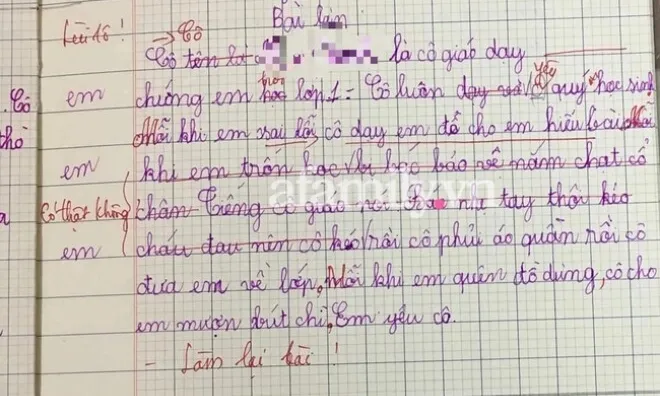 Bài làm
Lùi 1 ô! → Cô
Cô tên là là cô giáo dạy
em chúng em học lớp 1 = Cô luôn dạy quý học sinh
trong
yêu
Cô
thò
Mỗi khi em sai lỗi cô dạy em để cho em hiểu bài. Mỗi
em khi em trốn học bác bảo vệ nắm chặt cổ
Có thật không
chân tay thôi kéo
em cháu đau nên cô phủi áo quần rồi cô
đưa em về lớp. Mỗi khi em quên đồ dùng, cô cho
em mượn bút chì, Em yêu cô.
- Làm lại bài!
afamily.vn